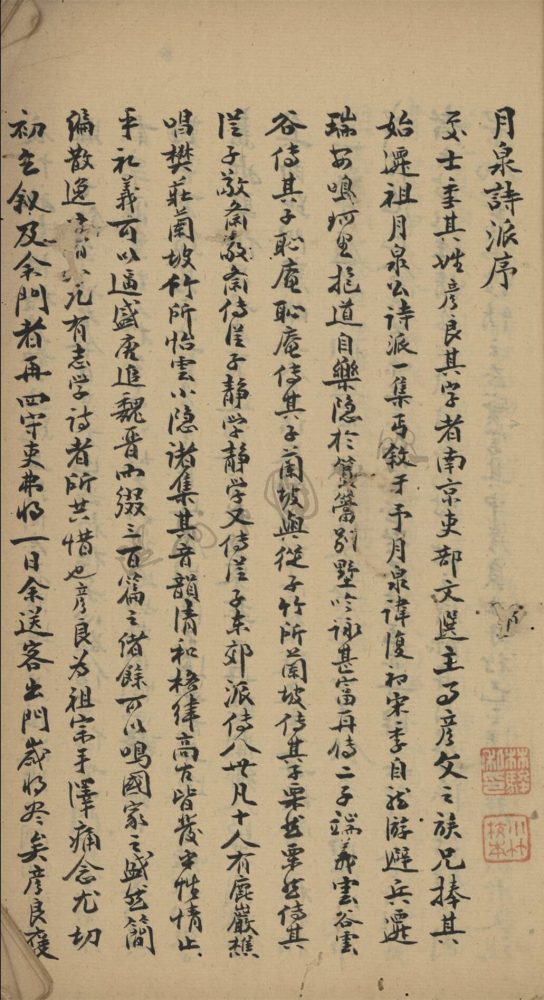 月泉詩派序
安士季其姓彥良其字者南京吏部文選主事彥文之族兄捧其
始遷祖月泉公詩派一集丐敘于予月泉諱復初宋季自龍游避兵遷
瑞安鳴珂里抱道自樂隱於篔簹別墅吟詠甚富再傳二子端義雲谷雲
谷傳其子恥庵恥庵傳其子蘭坡與從子竹所蘭坡傳其子栗然栗然傳其
從子敬齋敬齋傳從子靜学靜学又傳從子東郊派傳八世凡十人有鹿巖樵
唱樊莊蘭坡竹所怡雲小隱諸集其音韻清和格律高古皆發乎性情止
乎礼義可以逼盛唐追魏晉而綴三百篇之緒餘可以鳴國家之盛然簡
編散逸凡有志学诗者所共惜也彥良为祖宗手澤痛念尤切
初至叙及余門者再四守吏弗将一日余送客出門歲将尽矣彥良瘦